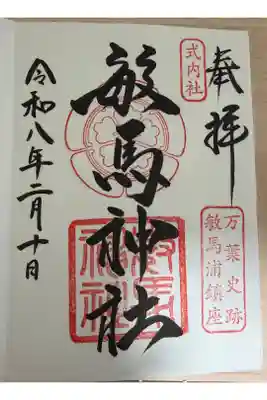 奉拝
式内社
万葉史跡
敏馬浦鎮座
敏馬神社
敏馬
神社
令和八年二月十日